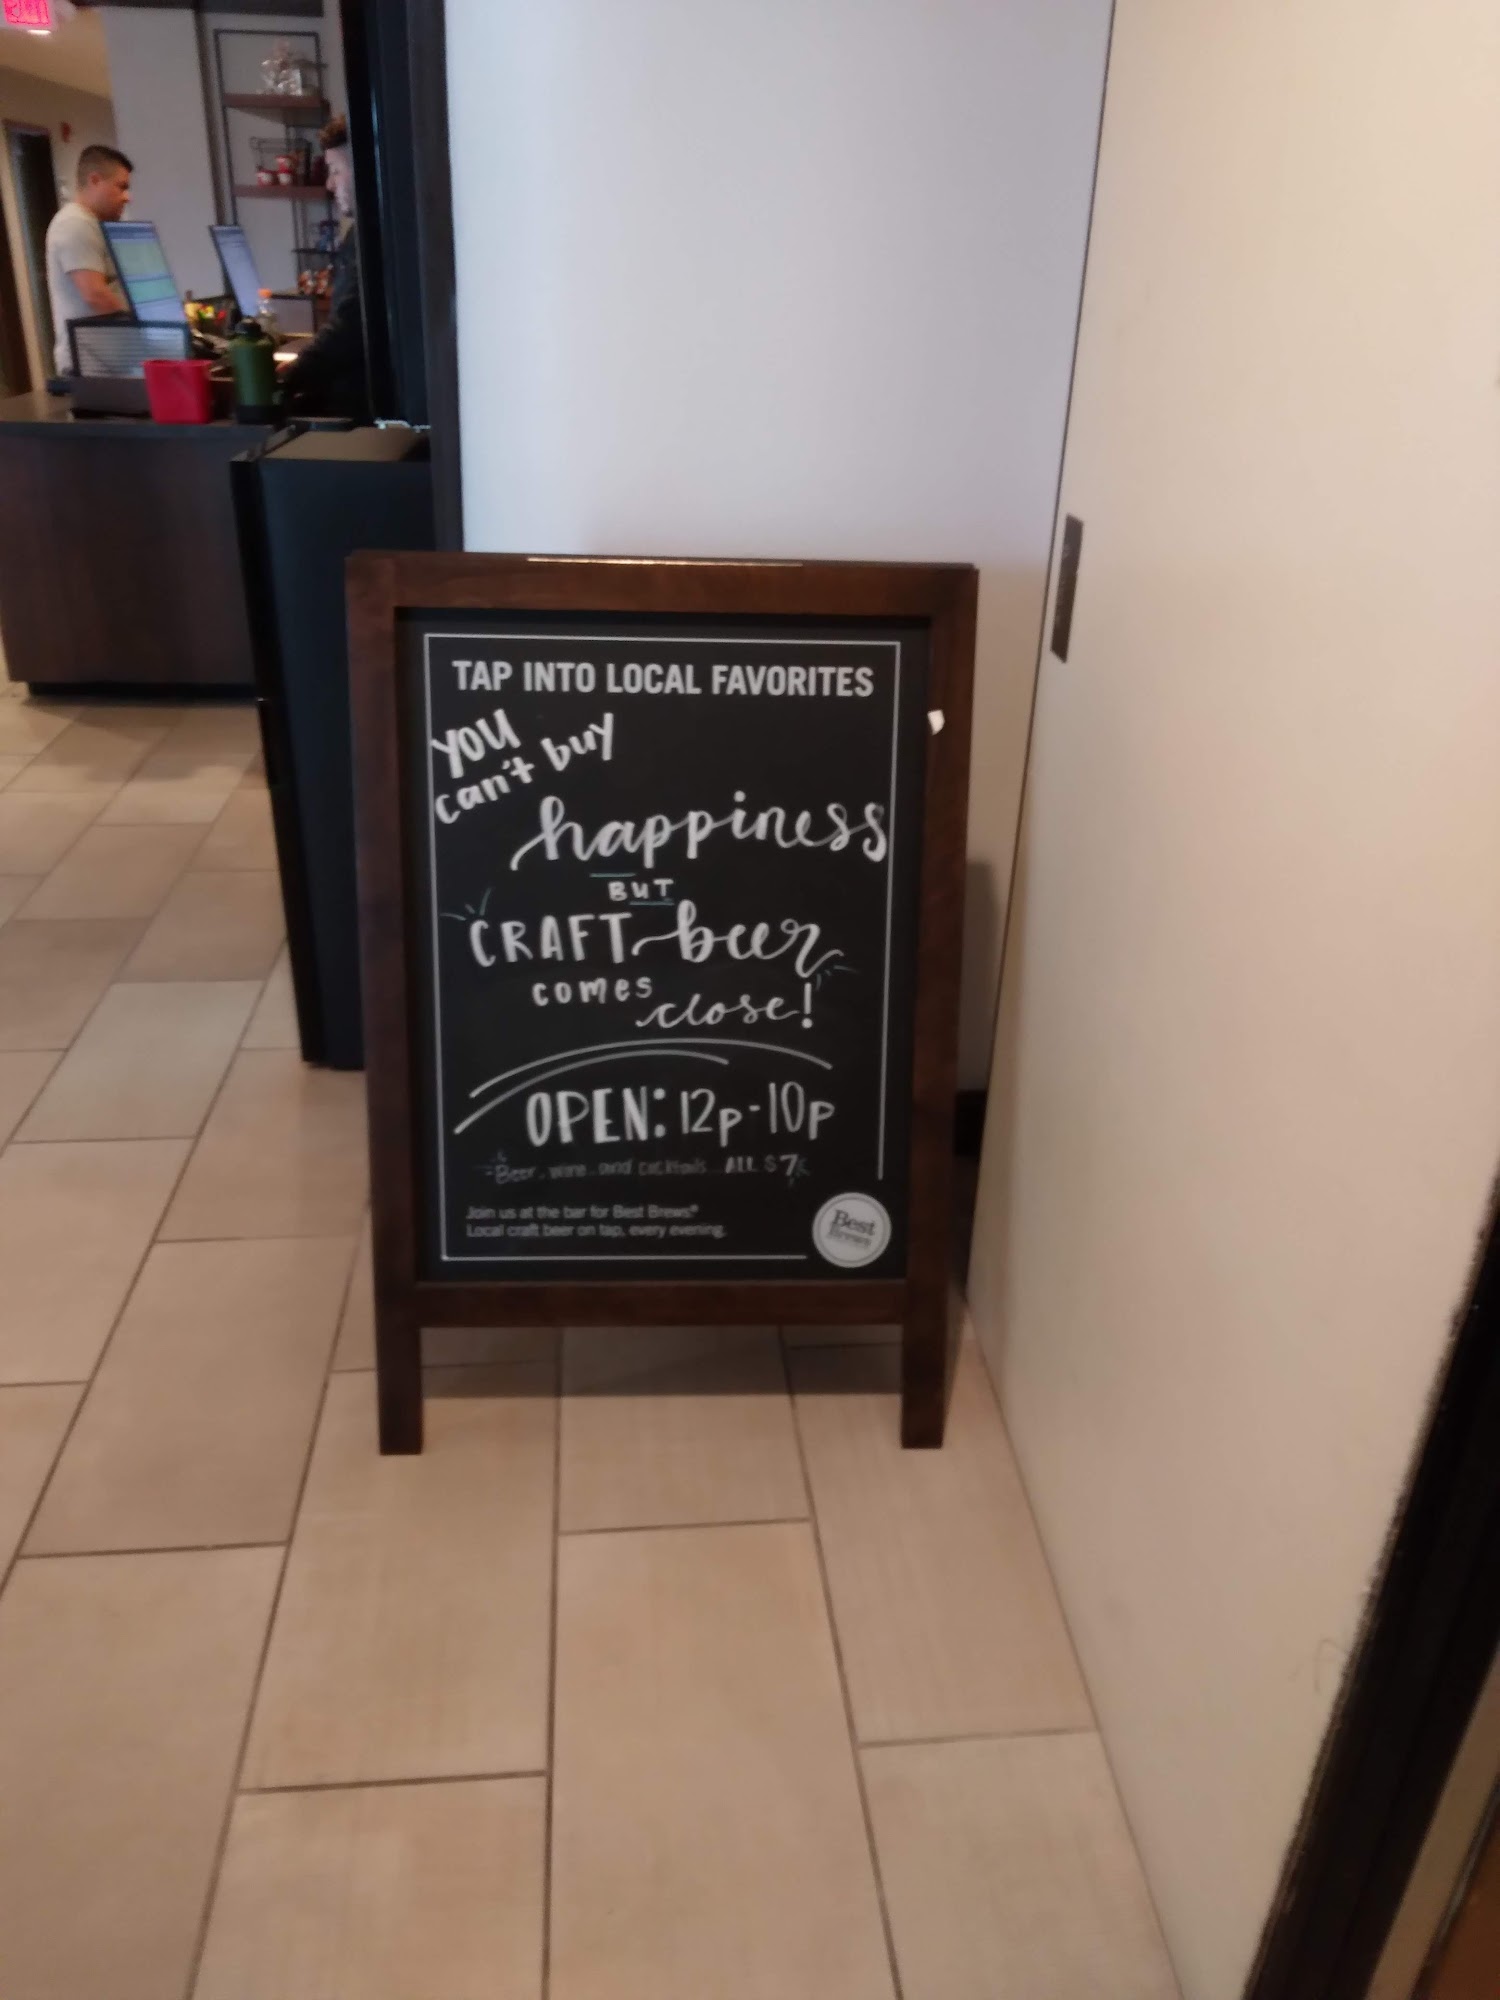 TAP INTO LOCAL FAVORITES
you
can't buy
happiness
BUT
CRAFT beer
comes
close!
OPEN: 12p-10p
Beer, wine and cocktails ALL $7
Join us at the bar for Best Brews®
Local craft beer on tap, every evening.
Best
Brews